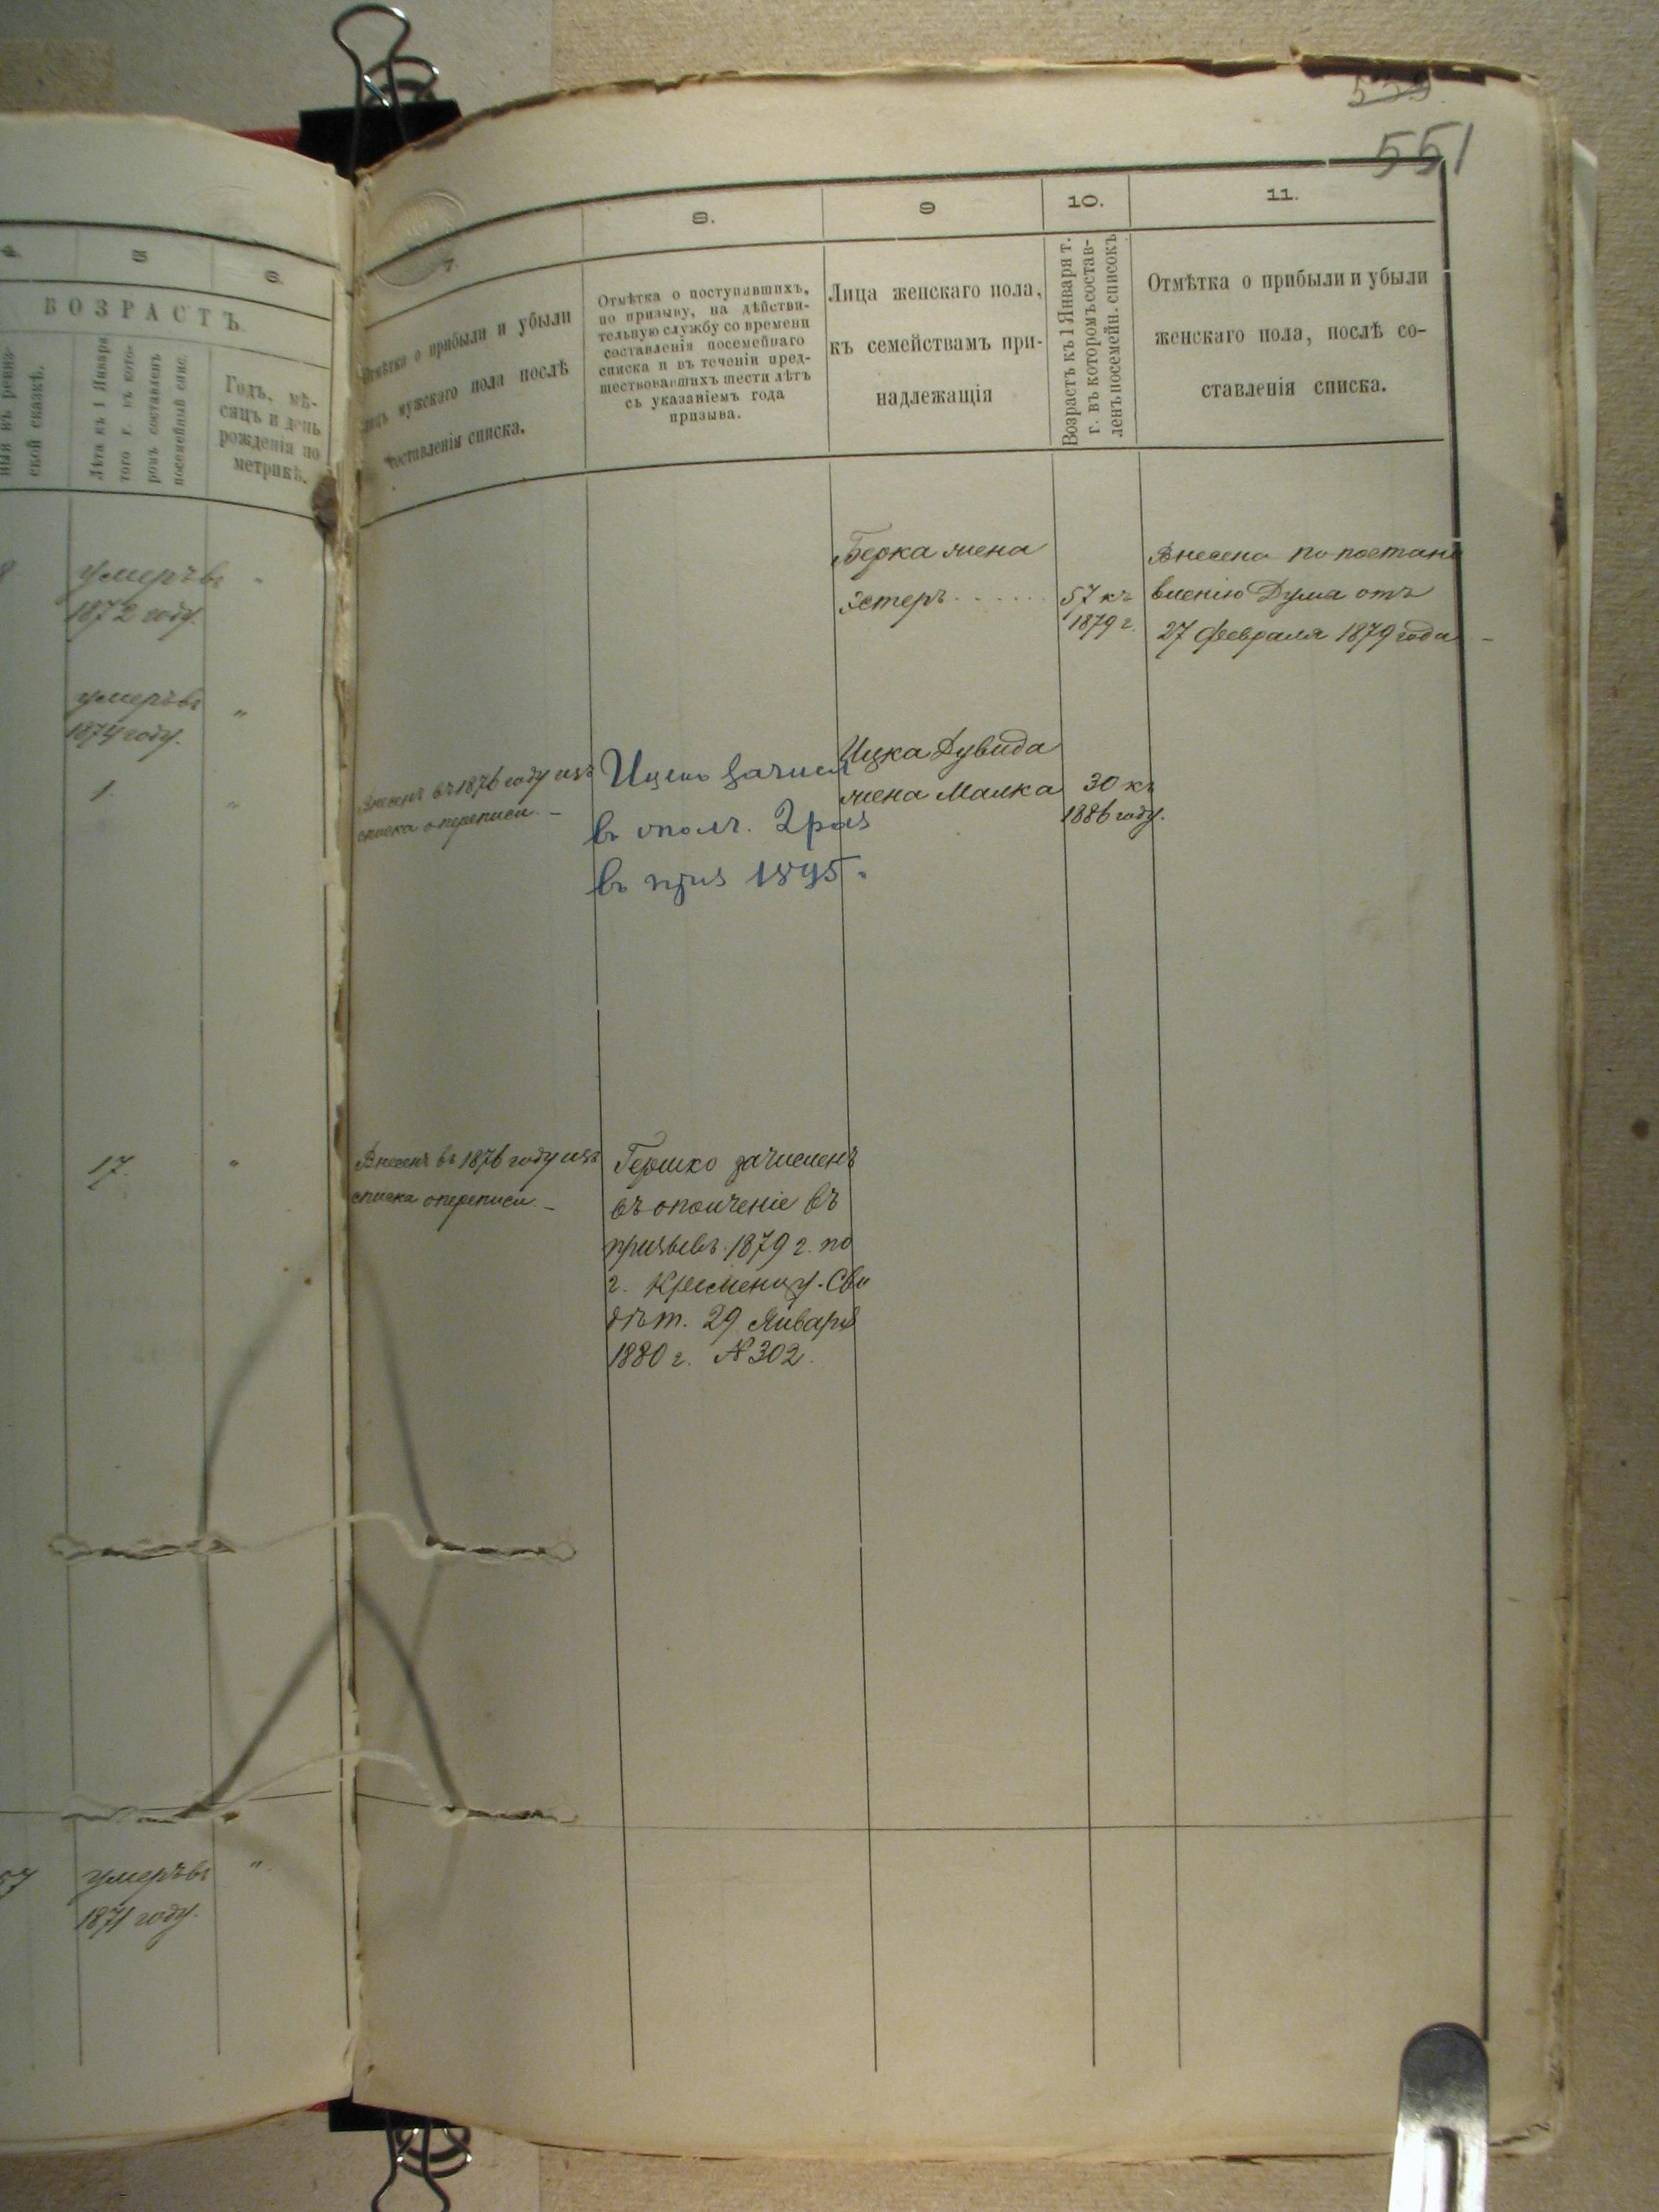 551
5
6
ВОЗРАСТЪ
ской сказкѣ.
Лѣта къ 1 Января
того г. въ кото-
ромъ составленъ
посемейный спис.
Годъ, мѣ-
сяцъ и день
рожденія по
метрикѣ.
умеръ въ "
1872 году.
умеръ въ "
1874 году.
1. "
17. "
57 умеръ въ "
1871 году.
7.
8.
9
10.
11.
Отмѣтка о прибыли и убыли
лицъ мужскаго пола послѣ
составленія списка.
Отмѣтка о поступавшихъ,
по призыву, на дѣйстви-
тельную службу со времени
составленія посемейнаго
списка и въ теченіи пред-
шествовавшихъ шести лѣтъ
съ указаніемъ года
призыва.
Лица женскаго пола,
къ семействамъ при-
надлежащія
Возрастъ къ 1 Января т.
г. въ которомъ состав-
ленъ посемейн. списокъ
Отмѣтка о прибыли и убыли
женскаго пола, послѣ со-
ставленія списка.
Берка жена
Эстеръ . . . . . .
57 къ
1879 г.
Внесена по постано
вленію Думы отъ
27 февраля 1879 года. -
Внесенъ въ 1876 году изъ
списка о переписи. -
Ицко зачисл
въ ополч. 2 раз
въ приз 1895.
Ицка Дувида
жена Малка
30 къ
1886 году.
Внесенъ въ 1876 году изъ
списка о переписи. -
Гершко зачисленъ
въ ополченіе въ
призывъ 1879 г. по
г. Кременцу. Сви
дѣт. 29 Января
1880 г. № 302.